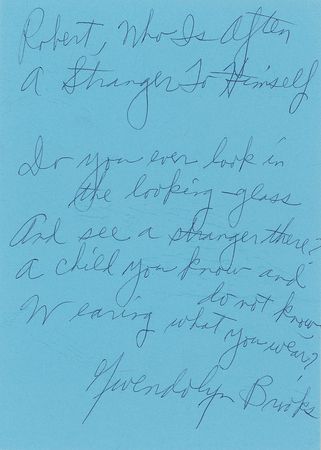 Robert, Who Is Often
A Stranger To Himself
Do you ever look in
the looking-glass
And see a stranger there?
A child you know and
do not know
Wearing what you wear?
Gwendolyn Brooks